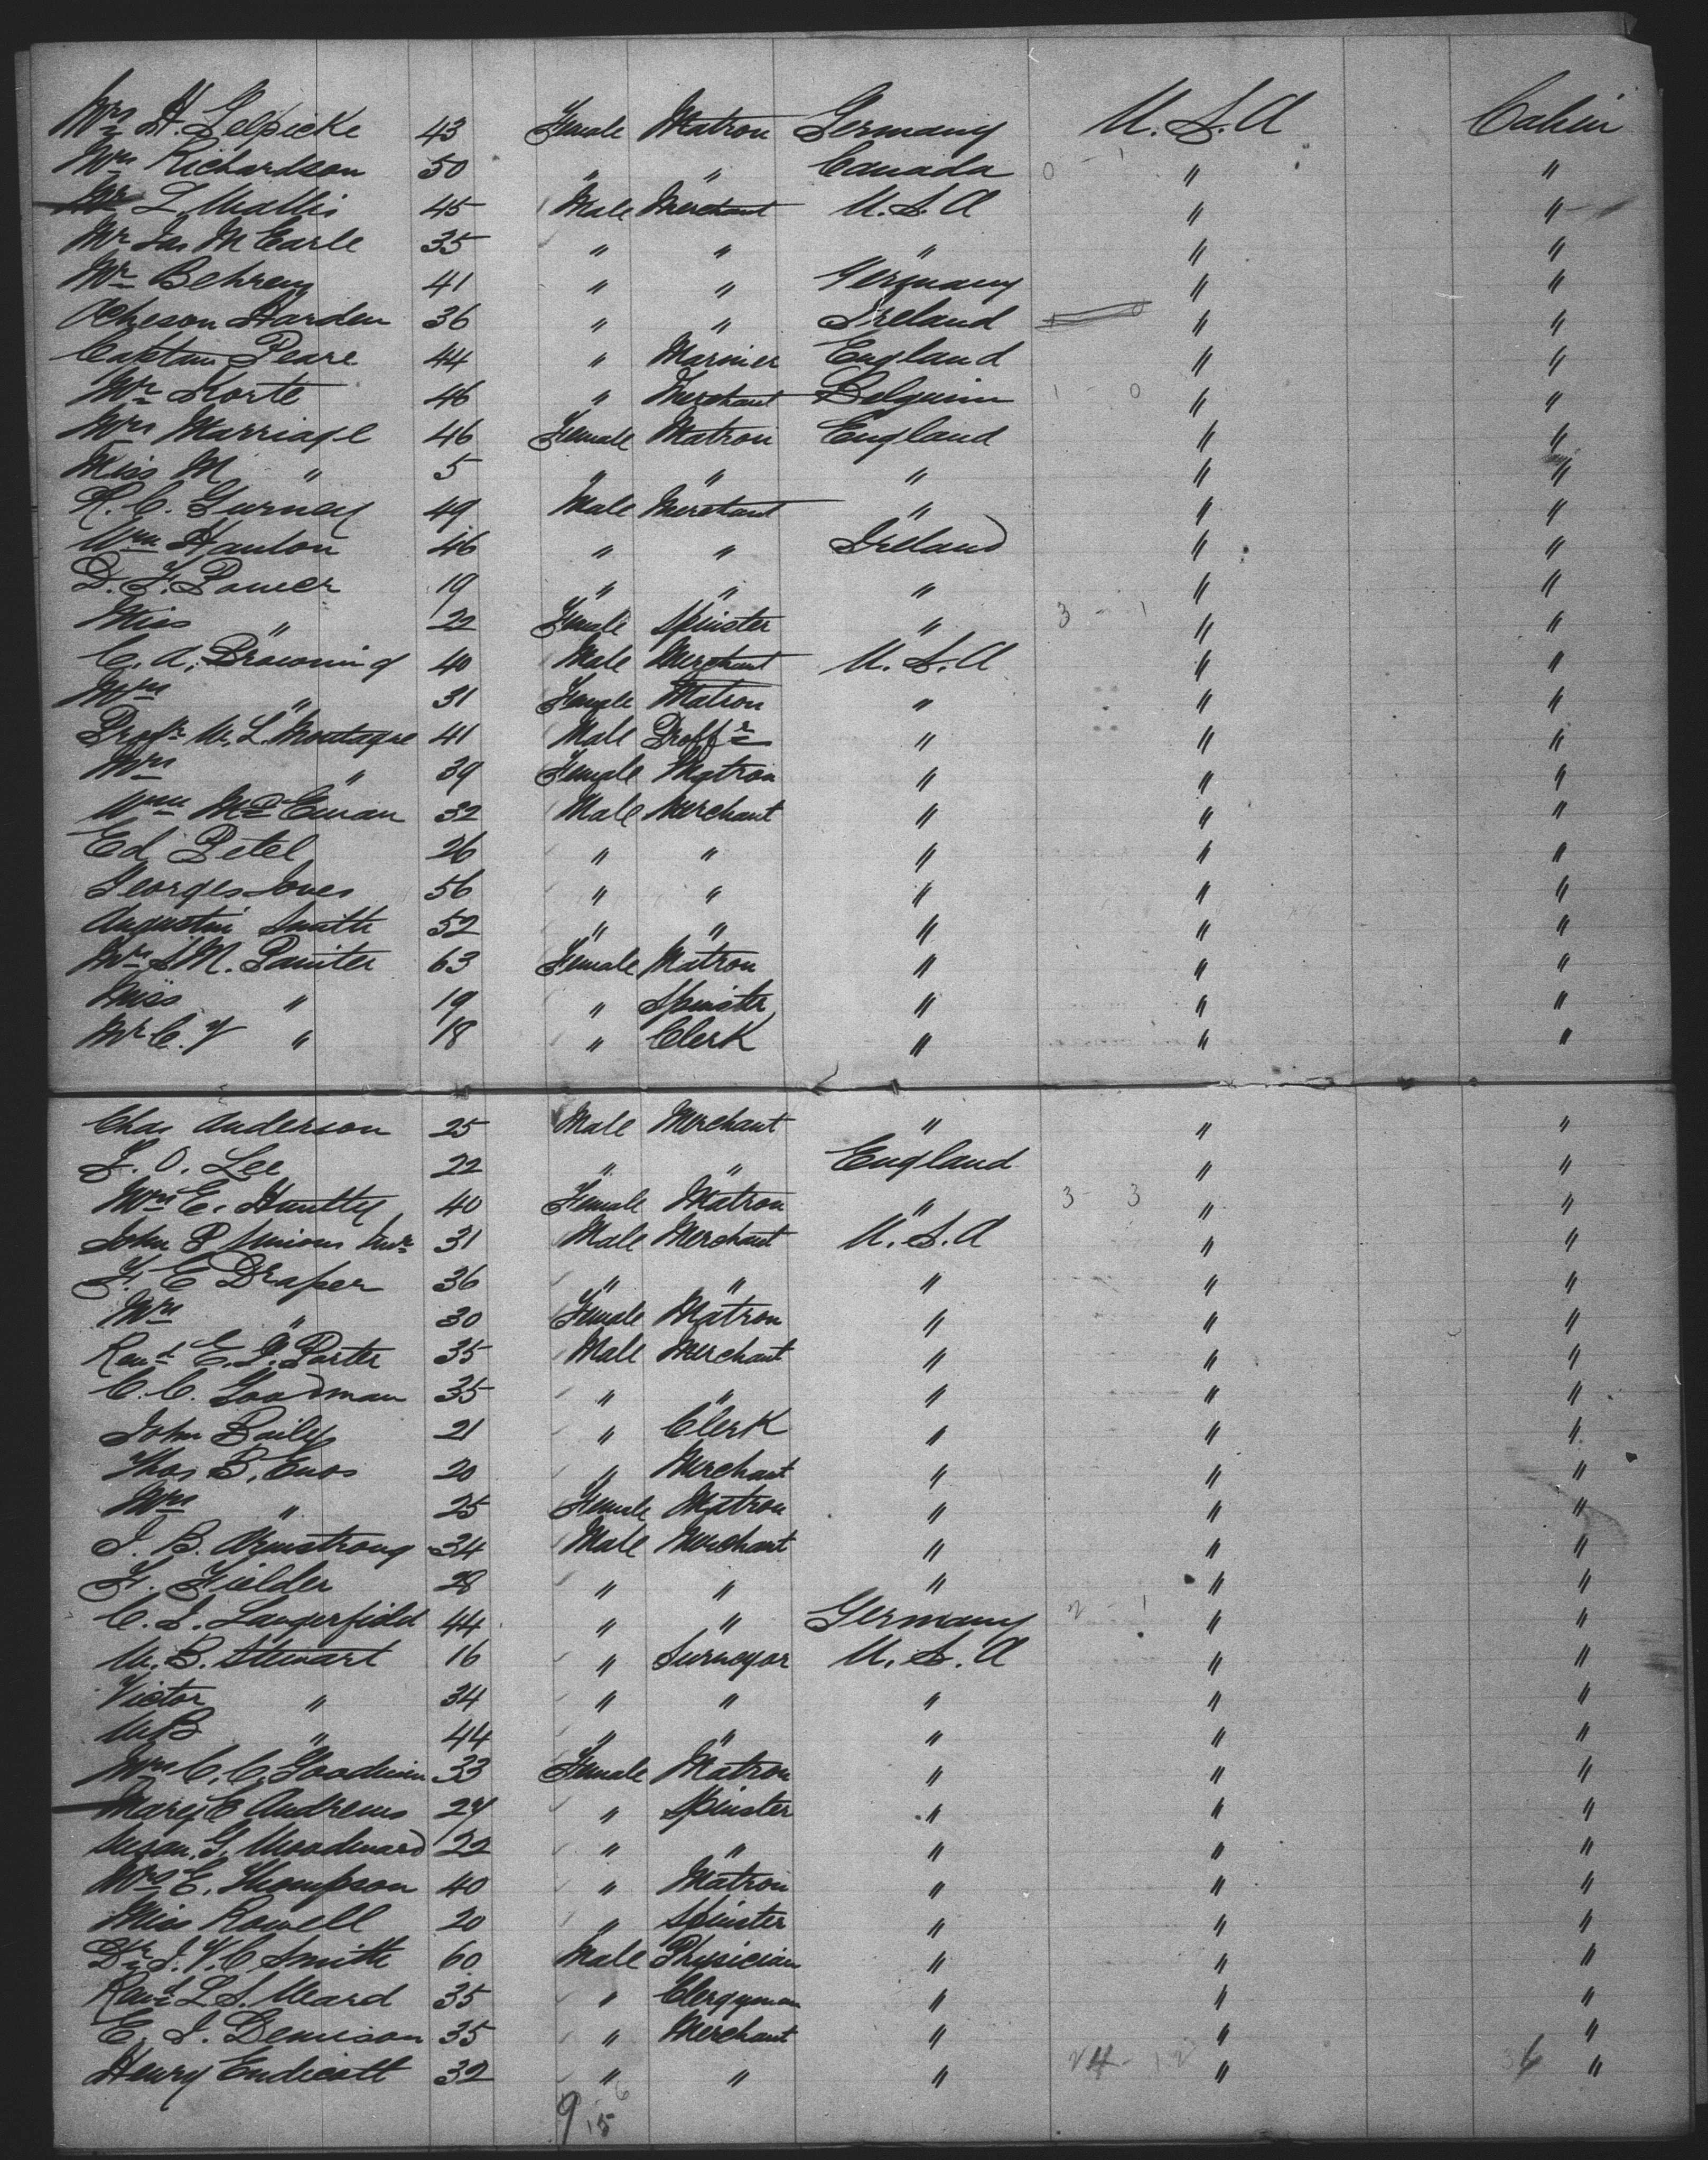 Mrs H. Gelpicke 43 Female Matron Germany U.S.A Cabin
Mrs Richardson 50 " " Canada 0 - 1 " "
Mr L. Wallis 45 Male Merchant U.S.A " "
Mr Jas M Earle 35 " " " " "
Mr Behrens 41 " " Germany " "
Acheson Harden 36 " " Ireland " "
Captain Peare 44 " Mariner England " "
Mr Korte 46 " Merchant Belguim 1 0 " "
Mrs Marriage 46 Female Matron England " "
Miss M " 5 " " " " "
R. C. Gurney 49 Male Merchant " " "
Wm Hanlon 46 " " Ireland " "
D. F. Power 19 " " " " "
Miss " 22 Female Spinster " 3 - 1 " "
C. A. Browning 40 Male Merchant U.S.A " "
Mrs " 31 Female Matron " " "
Profr W. L. Montague 41 Male Proffr " " "
Mrs " 39 Female Matron " " "
Wm McEwan 32 Male Merchant " " "
Ed Petel 26 " " " " "
Georges Jones 56 " " " " "
Augustin Smith 52 " " " " "
Mrs S M. Painter 63 Female Matron " " "
Miss " 19 " Spinster " " "
Mr C. V " 18 " Clerk " " "
Chas Anderson 25 Male Merchant " " "
F. O. Lee 22 " " England " "
Mrs E. Huntly 40 Female Matron " 3 - 3 " "
John P Simons Junr 31 Male Merchant U.S.A " "
F. E Draper 36 " " " " "
Mrs " 30 Female Matron " " "
Revd E. G. Porter 35 Male Merchant " " "
C. C. Goodman 35 " " " " "
John Baily 21 " Clerk " " "
Thos B. Enos 20 " Merchant " " "
Mrs " 25 Female Matron " " "
J. B. Armstrong 34 Male Merchant " " "
F. Fielder 28 " " " " "
C. J. Langerfield 44 " " Germany 2 - 1 " "
W. B. Stewart 16 " Surveyor U.S.A " "
Victor " 34 " " " " "
W B " 44 " " " " "
Mrs C. C. Goodwin 33 Female Matron " " "
Mary E Andrews 24 " Spinster " " "
Susan G. Woodward 22 " " " " "
Mrs E. Thompson 40 " Matron " " "
Miss Rowell 20 " Spinster " " "
Dr J. V. C Smith 60 Male Physician " " "
Revd L S. Ward 35 " Clergyman " " "
E. J. Denison 35 " Merchant " " "
Henry Endicott 32 " " " 24 - 12 " 36 "
9 15 6